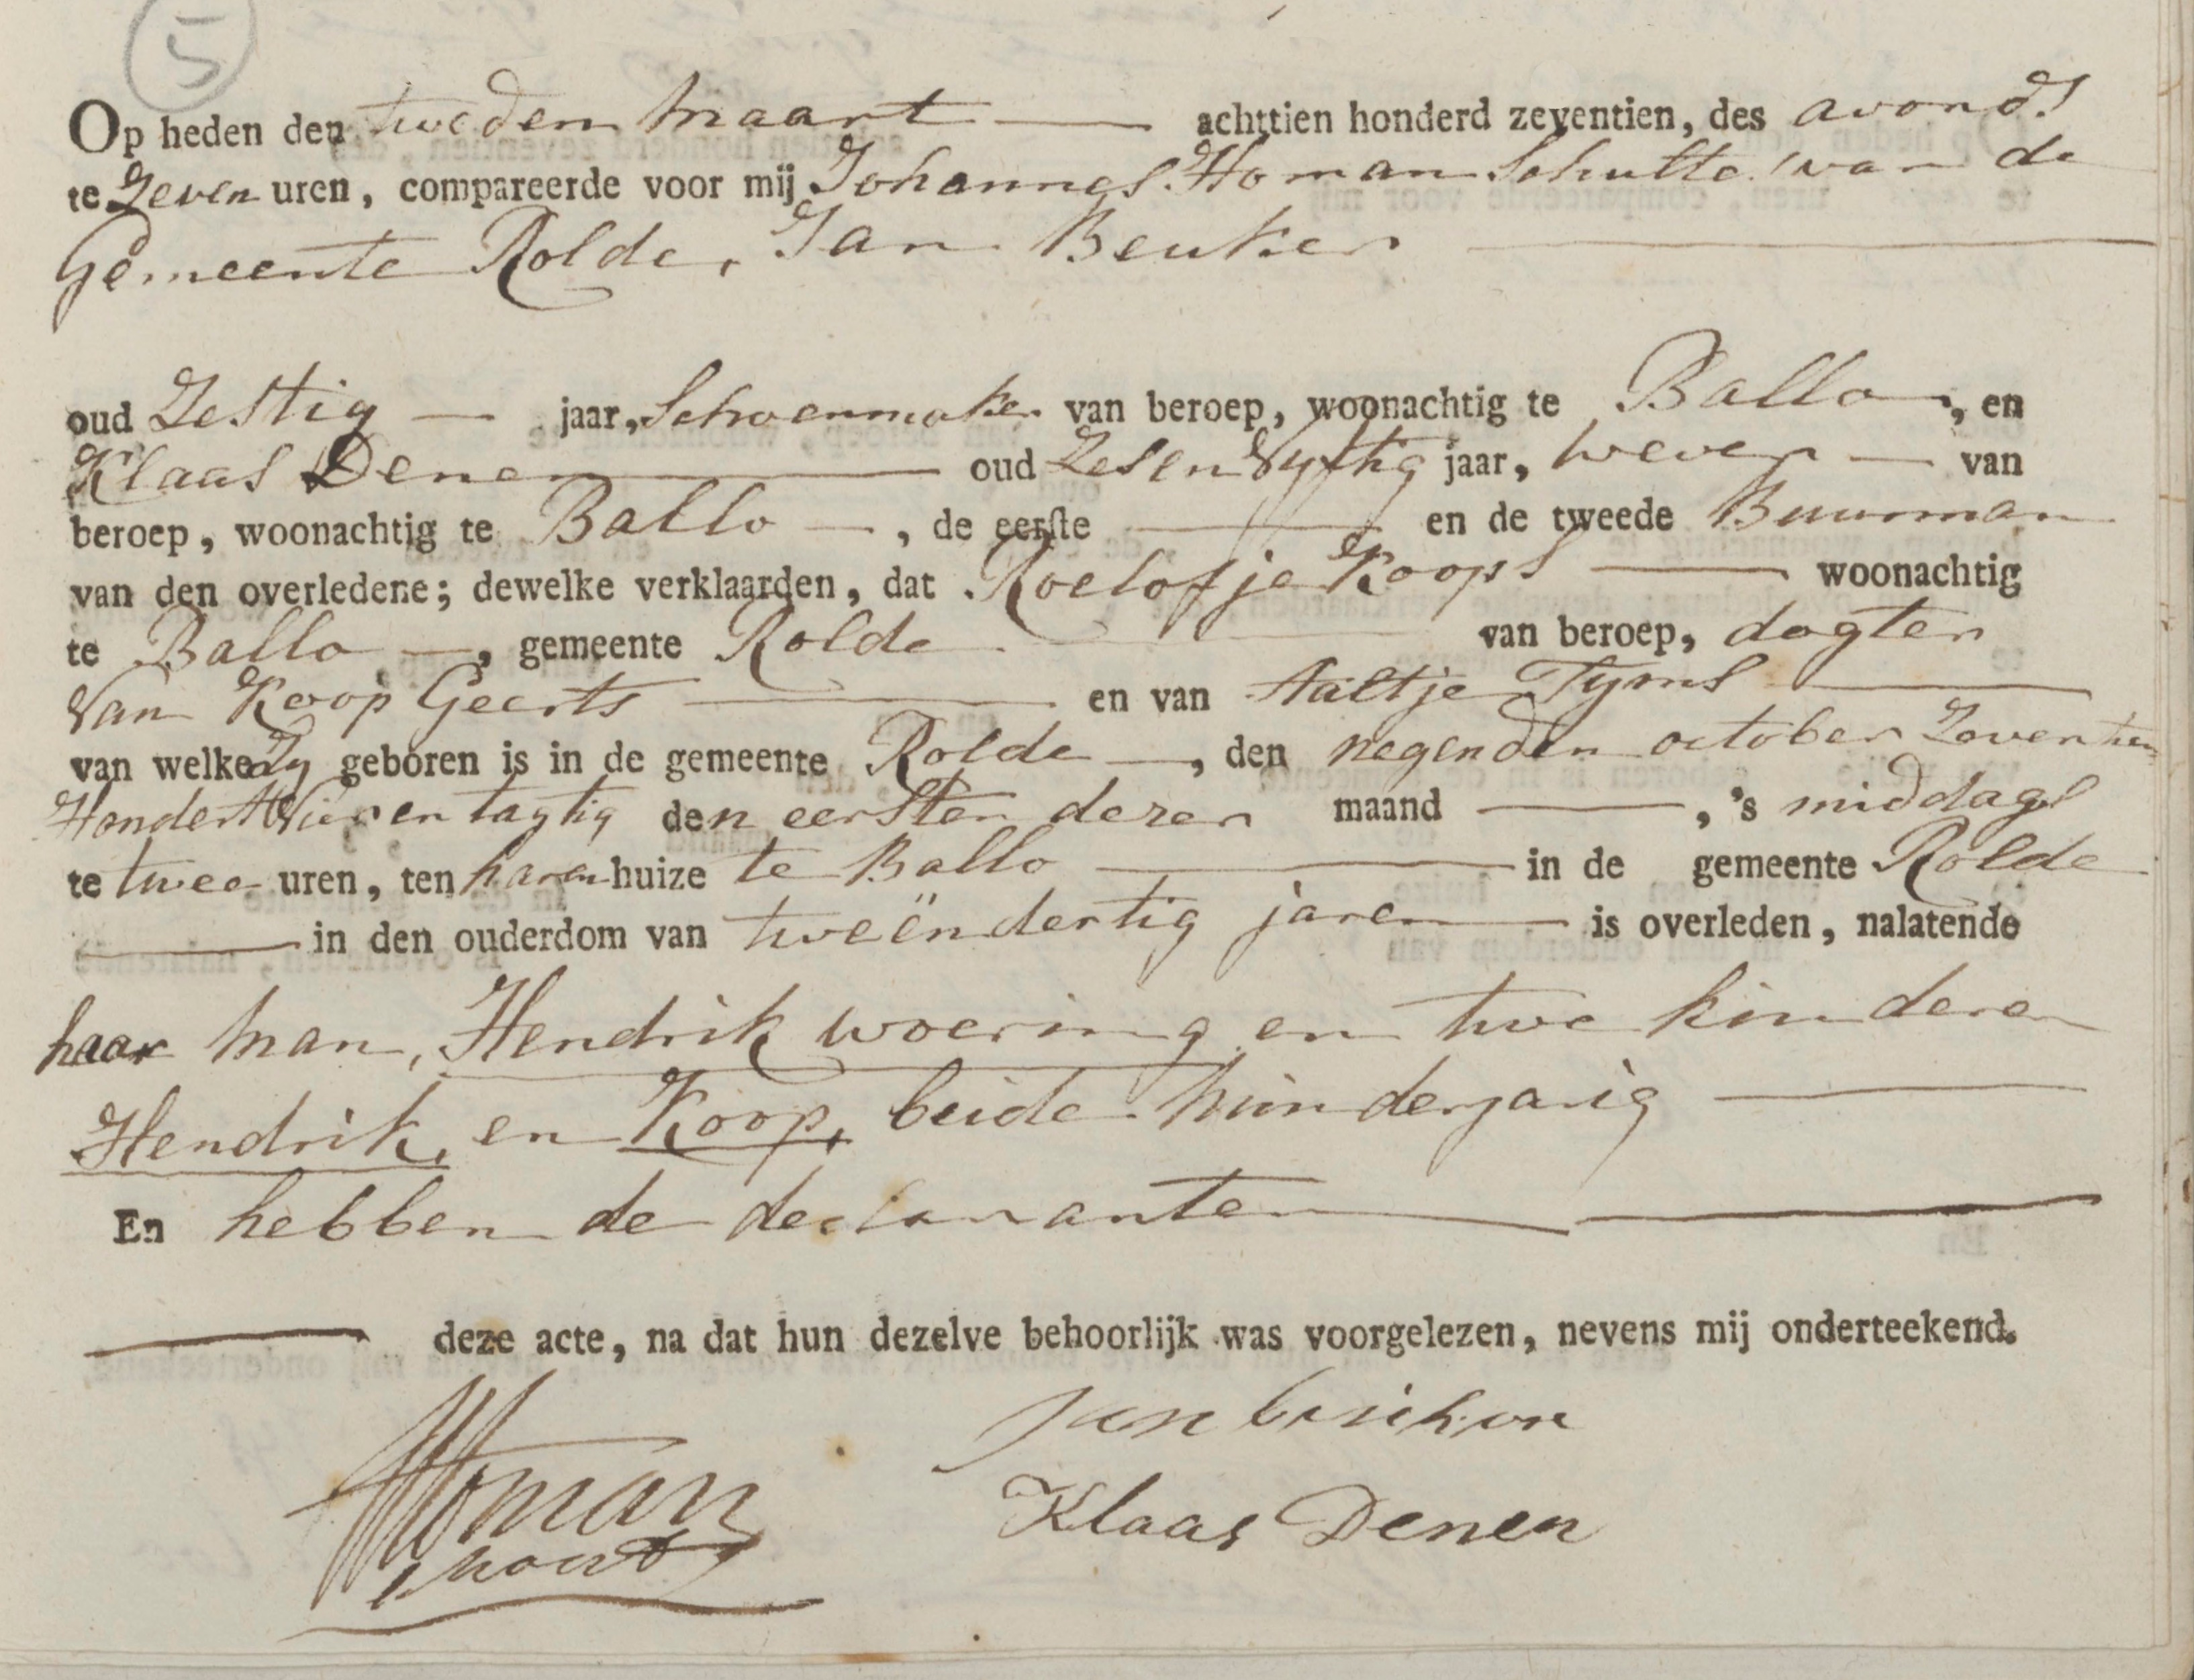 5
Op heden den tweden maart achttien honderd zeventien, des avonds
te Zeven uren, compareerde voor mij Johannes Homan Schulte van de
Gemeente Rolde, Jan Beuker
oud Zestig jaar, Schoenmaker van beroep, woonachtig te Ballo, en
Klaas Denen oud Zesenvyftig jaar, wever van
beroep, woonachtig te Ballo, de eerste en de tweede Buurman
van den overledene; dewelke verklaarden, dat Roelofje Koops woonachtig
te Ballo, gemeente Rolde van beroep, dogter
Van Koop Geerts en van Aaltje Tyms
van welke Zy geboren is in de gemeente Rolde, den negenden october Zeventien
Hondert Vier en tagtig den eersten dezer maand, 's middags
te twee uren, ten haren huize te Ballo in de gemeente Rolde
in den ouderdom van tweëndertig jaren is overleden, nalatende
haar man, Hendrik woering en twe kinderen
Hendrik, en Koop, beide minderjarig
En hebben de declaranten
deze acte, na dat hun dezelve behoorlijk was voorgelezen, nevens mij onderteekend.
Jan
Homan
Klaas Denen